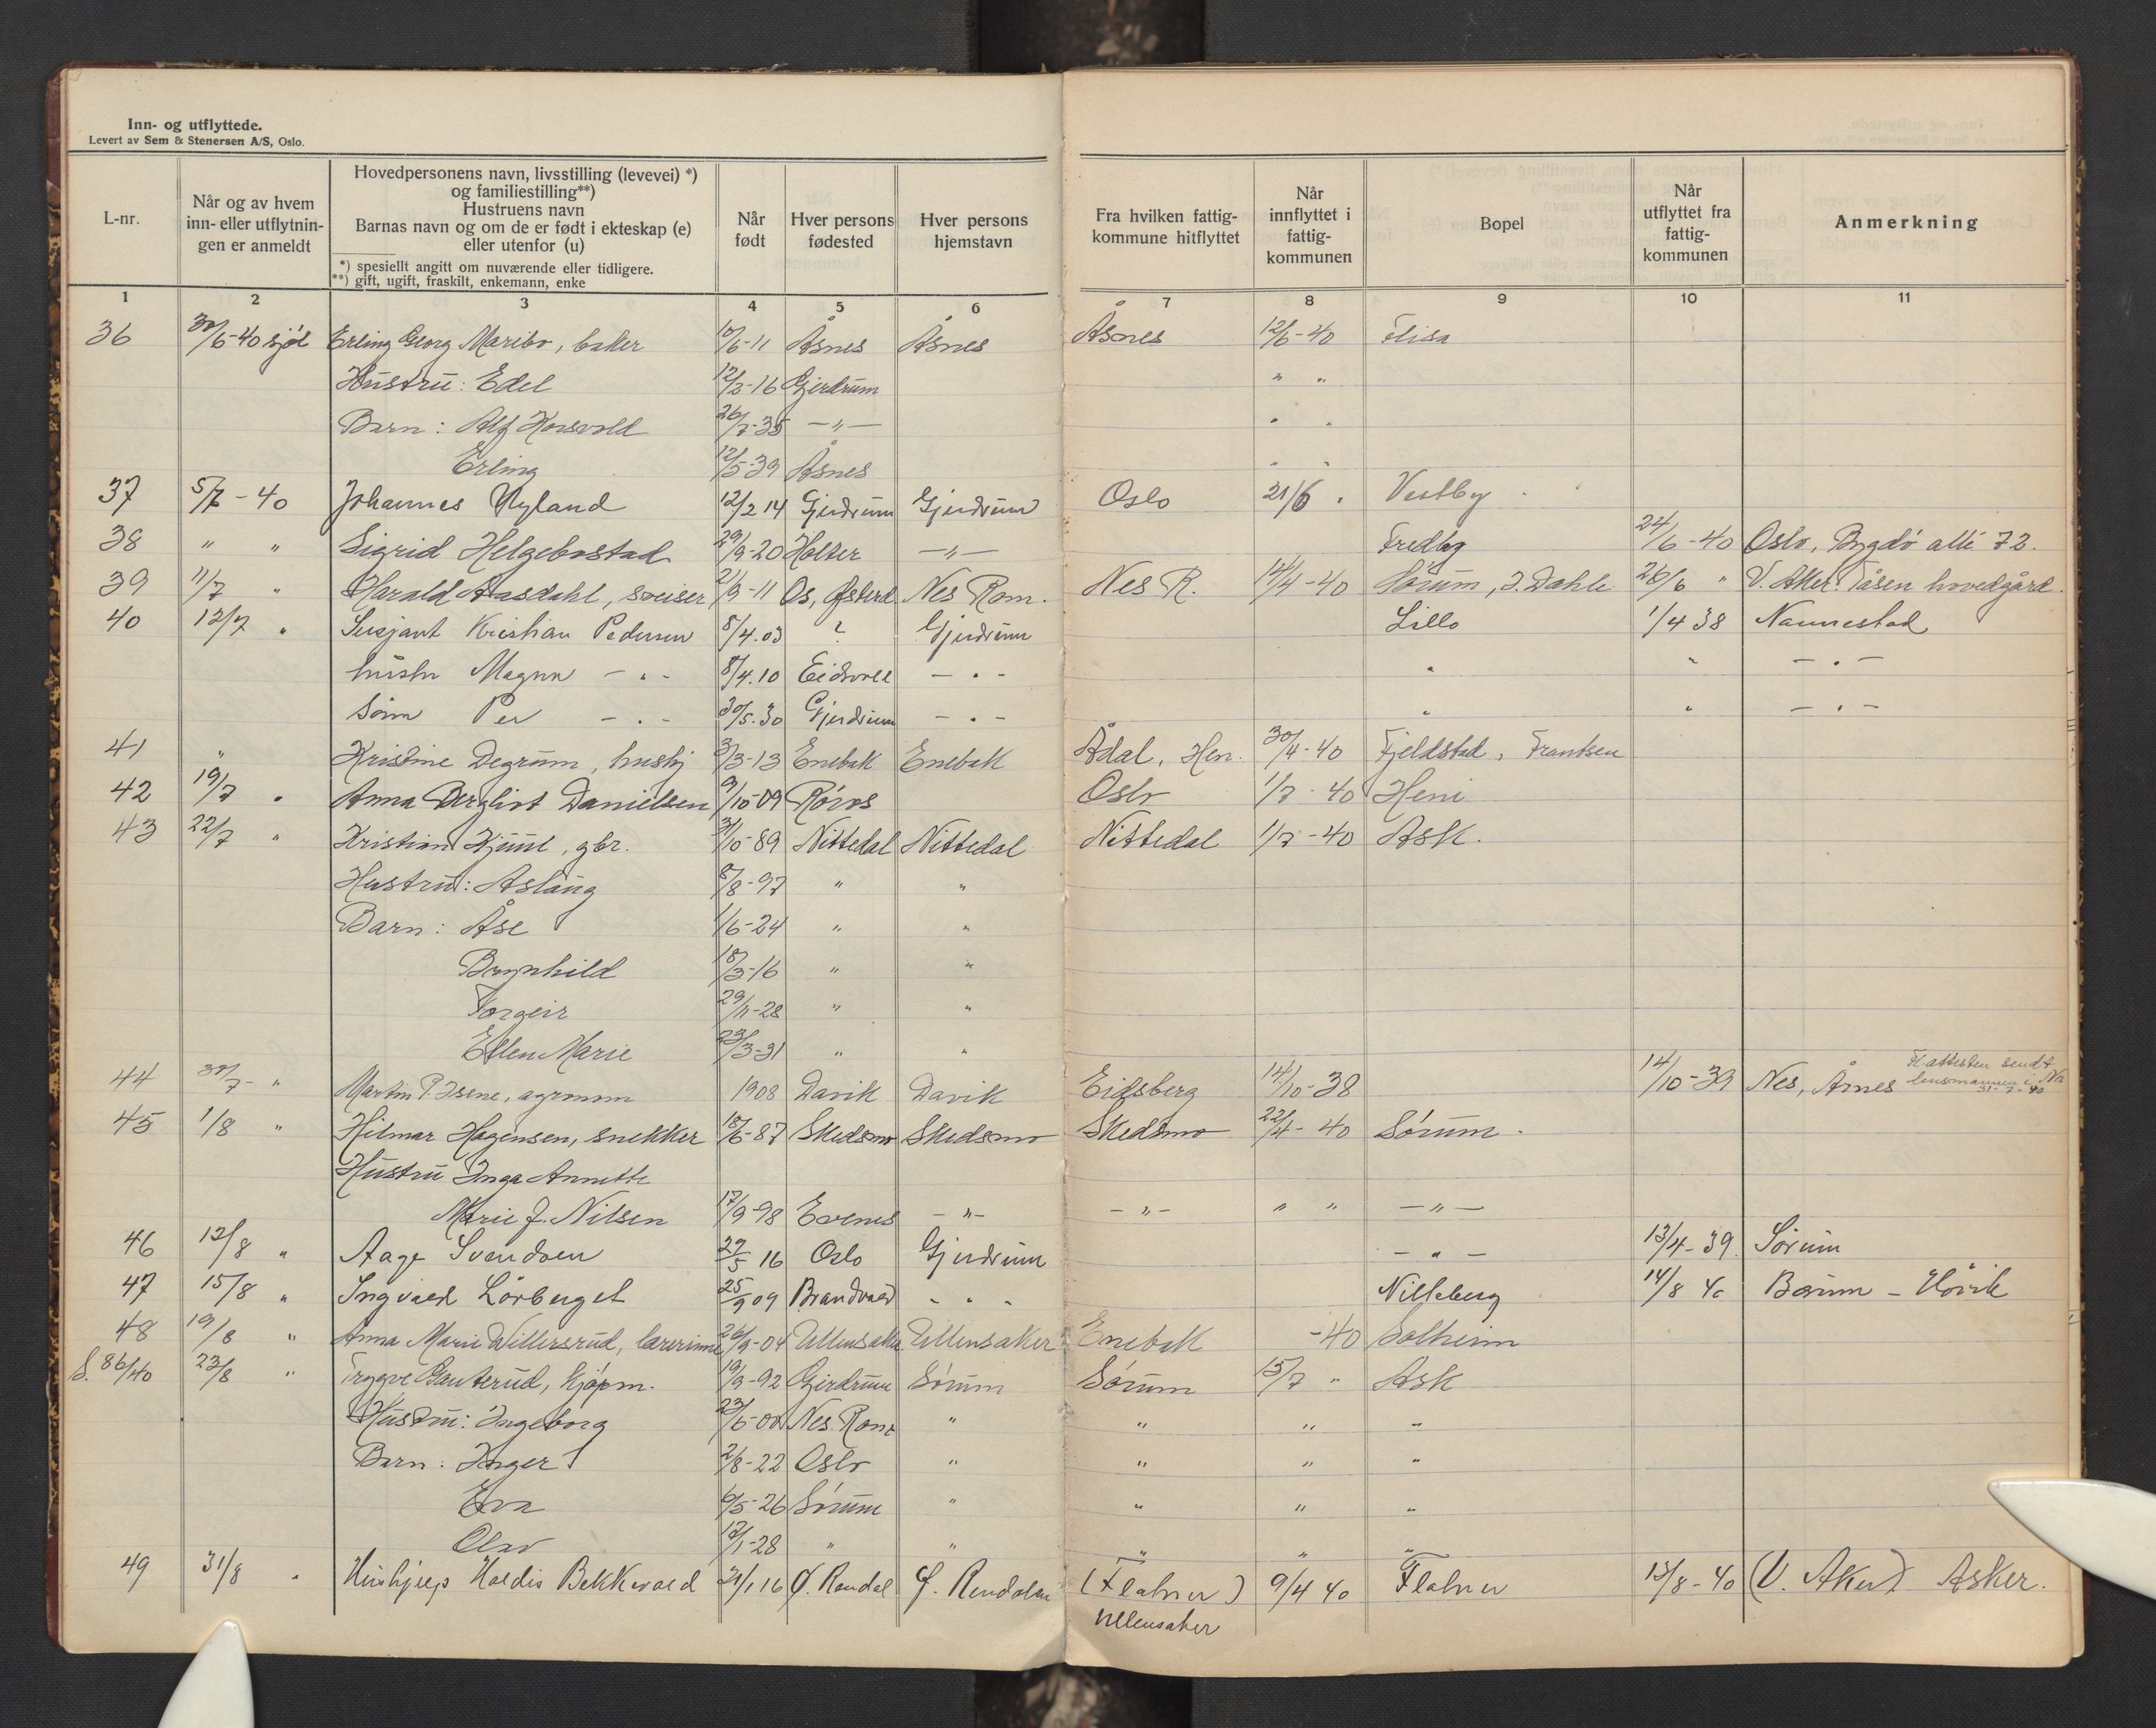 Inn- og utflyttede.
Levert av Sem & Stenersen A/S, Oslo.
L-nr.
Når og av hvem
inn- eller utflytnin-
gen er anmeldt
Hovedpersonens navn, livsstilling (levevei) *)
og familiestilling**)
Hustruens navn
Barnas navn og om de er født i ekteskap (e)
eller utenfor (u)
*) spesiellt angitt om nuværende eller tidligere.
**) gift, ugift, fraskilt, enkemann, enke
Når
født
Hver persons
fødested
Hver persons
hjemstavn
Fra hvilken fattig-
kommune hitflyttet
Når
innflyttet i
fattig-
kommunen
Bopel
Når
utflyttet fra
fattig-
kommunen
Anmerkning
1 2 3 4 5 6 7 8 9 10 11
36 30/6-40 sjøl Erling Georg Maribo, baker 10/6-11 Åsnes Åsnes Åsnes 12/6-40 Flisa
Hustru: Edel 12/3-16 Gjerdrum " "
Barn: Alf Korsvold 26/7-35 -"- " "
Erling 12/5-39 Åsnes " "
37 5/7-40 Johannes Nyland 12/2 14 Gjerdrum Gjerdrum Oslo 21/6 " Vestby
38 " " Sigrid Helgebostad 29/9-20 Holter -"- Fredby 24/6-40 Oslo, Bygdö allé 72.
39 11/7 " Harald Aasdahl, sveiser 21/9-11 Os, Østerd. Nes Rom. Nes R. 14/4-40 Sörum, J. Dahle 26/6 " V. Aker. Tåsen hovedgård.
40 12/7 " Sersjant Kristian Pedersen 8/4.03 ? Gjerdrum Lillo 1/4 38 Nannestad
hustru Magna - " - 8/4.10 Eidsvoll - " - " " - " -
Sönn Per - " - 30/5.30 Gjerdrum - " - " " - " -
41 " Kristine Degrum, hushj 3/3-13 Enebak Enebak Ådal, Hen. 30/4-40 Fjeldstad, Frantsen
42 19/7 " Anna Bergliot Danielsen 9/10-09 Röros Oslo 1/7-40 Heni
43 22/7 " Kristian Kjuul, gbr. 31/10-89 Nittedal Nittedal Nittedal 1/7-40 Ask.
Hustru: Aslaug 8/8-97 " "
Barn: Åse 1/6-24 " "
Brynhild 18/3-16 " "
Torgeir 29/11-28 " "
Ellen Marie 23/3-31 " "
44 30/7- " Martin P. Isene, agronom 1908 Davik Davik Eidsberg 14/10-38 14/10-39 Nes, Årnes Fl.attesten sendt
lensmannen i Nes
31-7-40
45 1/8 " Hilmar Hagensen, snekker 18/6-87 Skedsmo Skedsmo Skedsmo 22/4-40 Sörum.
Hustru Inga Annette
Marie J. Nilsen 17/9-98 Evenes -"- -"- " " -"-
46 12/8 " Aage Svendsen 27/5 16 Oslo Gjerdrum -"- 13/4-39 Sörum
47 15/8 " Ingvald Lörberget 25/9 09 Brandvald - " - Nilleberg 14/8 40 Bærum - Hövik
48 19/8 " Anna Marie Willersrud, lærerinne 26/9-04 Ullensaker Ullensaker Enebak -40 Solheim
S. 86/40 23/8 " Trygve Gauterud, kjøpm. 19/9-92 Gjerdrum Sörum Sörum 15/7 " Ask
Hustru: Ingeborg 23/6-00 Nes Rom. " " " "
Barn: Inger 2/8-22 Oslo " " " "
Eva 6/5-26 Sörum " " " "
Olav 17/1-28 " " " " "
49 31/8 " Hushjelp Haldis Bekkevold 21/1 16 Ø. Rendal Ø. Rendalen (Flatner) 9/4 40 Flatner 13/8-40 (V. Aker) Asker.
Ullensaker